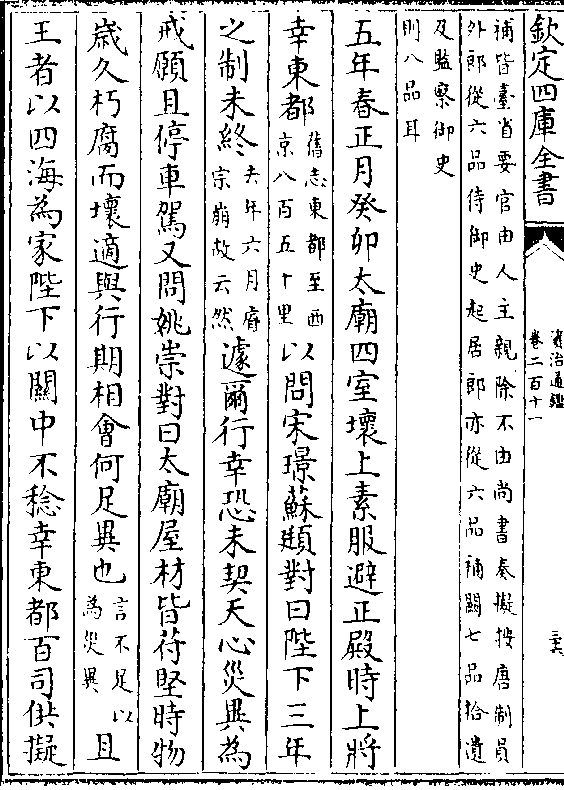 欽定四庫全書
資治通鑑
卷二百十一
補皆臺省要官由人主親除不由尚書奏擬按唐制員
外郎從六品侍御史起居郎亦從六品補闕七品拾遺
及監察御史
則八品耳
五年春正月癸卯太廟四室壞上素服避正殿時上將
幸東都舊志東都至西京八百五十里以問宋璟蘇頲對曰陛下三年
之制未終去年六月睿宗崩故云然遽爾行幸恐未契天心災異為
戒願且停車駕又問姚崇對曰太廟屋材皆苻堅時物
歲久朽腐而壞適與行期相會何足異也言不足以為災異且
王者以四海為家陛下以關中不稔幸東都百司供擬